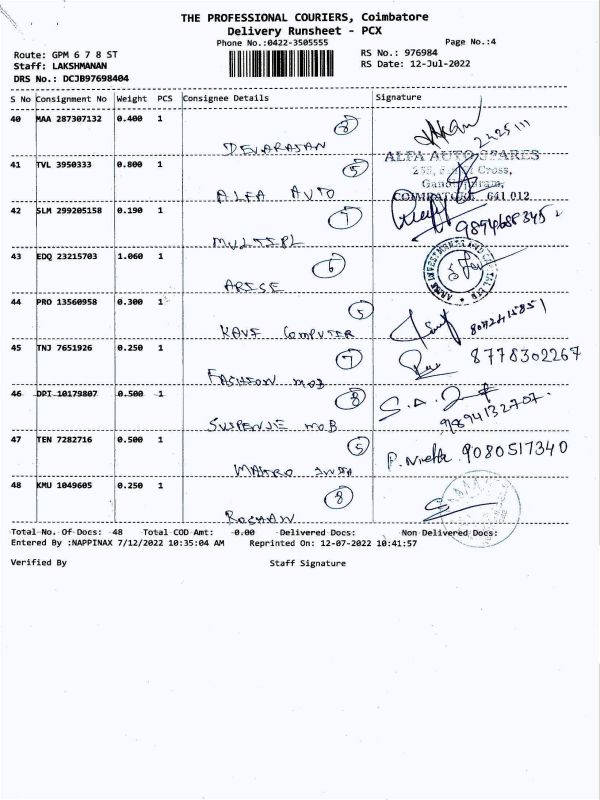 THE PROFESSIONAL COURIERS, Coimbatore
Delivery Runsheet - PCX
Phone No.:0422-3505555 Page No.:4
Route: GPM 6 7 8 ST RS No.: 976984
Staff: LAKSHMANAN RS Date: 12-Jul-2022
DRS No.: DCJB97698404
S No Consignment No Weight PCS Consignee Details Signature
40 MAA 287307132 0.400 1 8
DEVARAJAN
41 TVL 3950333 0.800 1 5 ALFA AUTO SPARES
Cross,
ALFA AUTO COIMBATORE 641 012
42 SLM 299205158 0.190 1 7
MULTIPL
43 EDQ 23215703 1.060 1 6
ARISE
44 PRO 13560958 0.300 1 5
KAVI COMPUTER
45 TNJ 7651926 0.250 1 7 8778302267
FASHION MOB
46 DPI 10179807 0.500 1 8 S.A.
SUSPENSE MOB 9894132707.
47 TEN 7282716 0.500 1 5 P. 9080517340
MAKRO
48 KMU 1049605 0.250 1 8
ROSHAN
Total No. Of Docs: 48 Total COD Amt: 0.00 Delivered Docs: Non Delivered Docs:
Entered By :NAPPINAX 7/12/2022 10:35:04 AM Reprinted On: 12-07-2022 10:41:57
Verified By Staff Signature